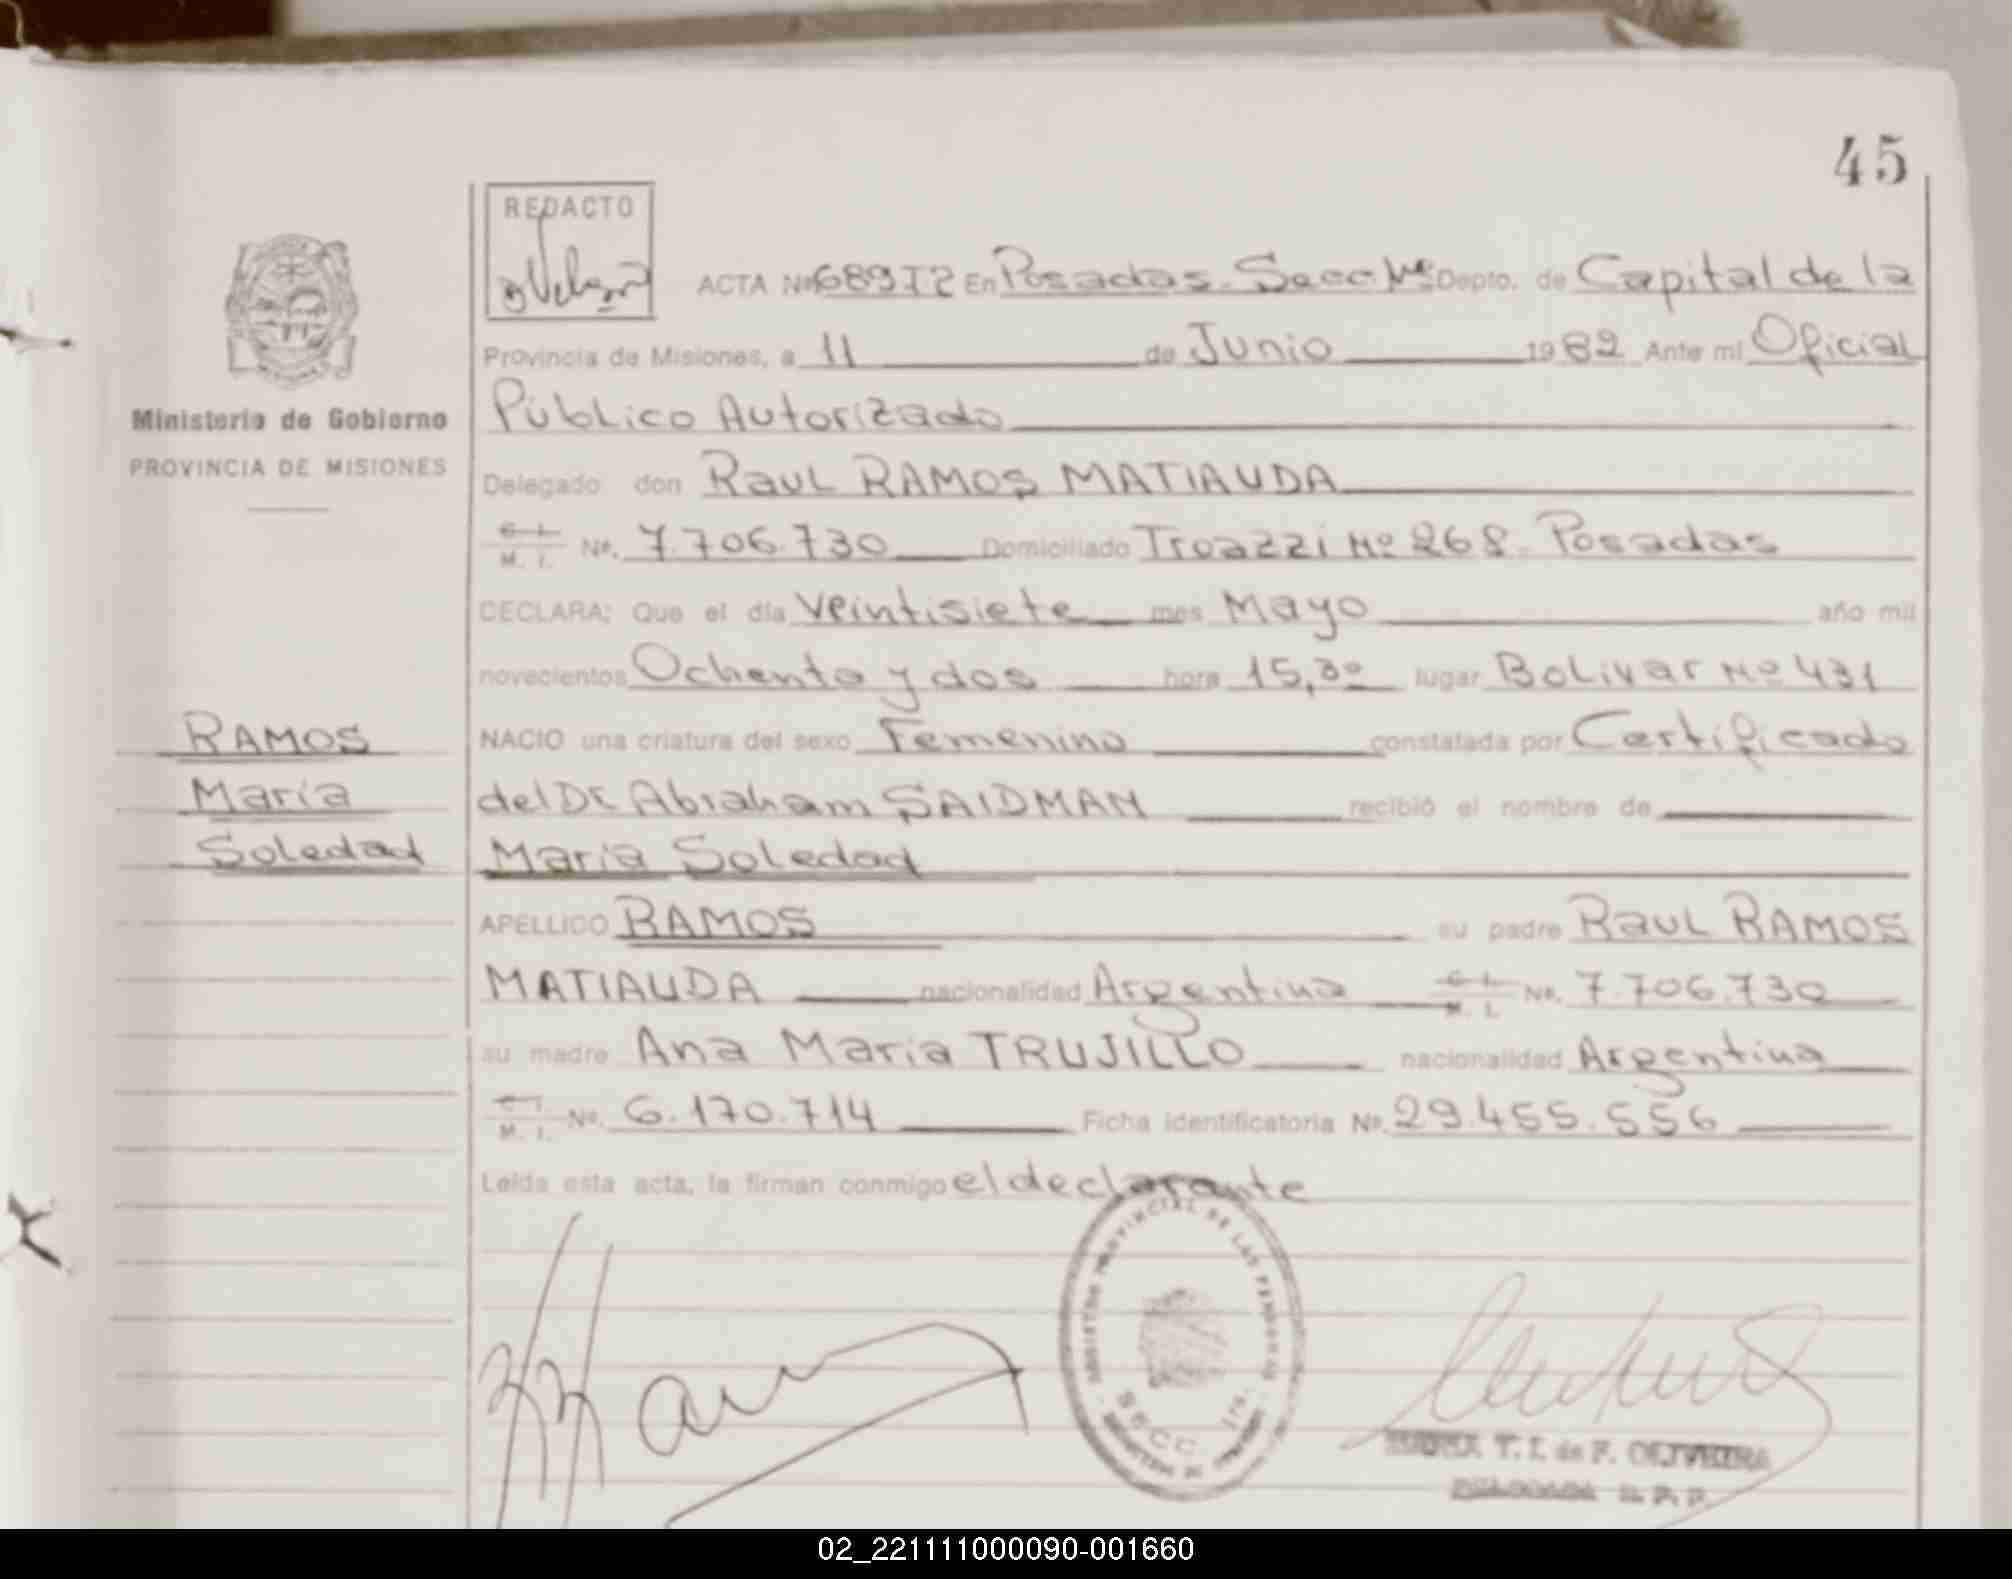 45
REDACTO
ACTA Nº 689T2 En Posadas. Secc. Depto. de Capital de la
Provincia de Misiones, a 11 de Junio 1982 Ante mi Oficial
Ministerio de Gobierno
Público Autorizado
PROVINCIA DE MISIONES
Delegado don Raul RAMOS MATIAUDA
C. I.
M. I. Nº. 7.706.730 Domiciliado Troazzi Nº 268. Posadas
DECLARA: Que el día Veintisiete mes Mayo año mil
novecientos Ochenta y dos hora 15,30 lugar Bolivar Nº 431
RAMOS
María
Soledad
NACIO una criatura del sexo Femenino constatada por Certificado
del Dr. Abraham SAIDMAN recibió el nombre de
María Soledad
APELLIDO RAMOS su padre Raul RAMOS
MATIAUDA nacionalidad Argentina C. I. M. I. Nº. 7.706.730
su madre Ana María TRUJILLO nacionalidad Argentina
C. I.
M. I. Nº. 6.170.714 Ficha identificatoria Nº. 29.455.556
Leída esta acta, la firman conmigo el declarante
REGISTRO PROVINCIAL DE LAS PERSONAS
SECC. 1ra.
T. I. de F. OLIVEIRA
DELEGADA R. P. P.
02_221111000090-001660